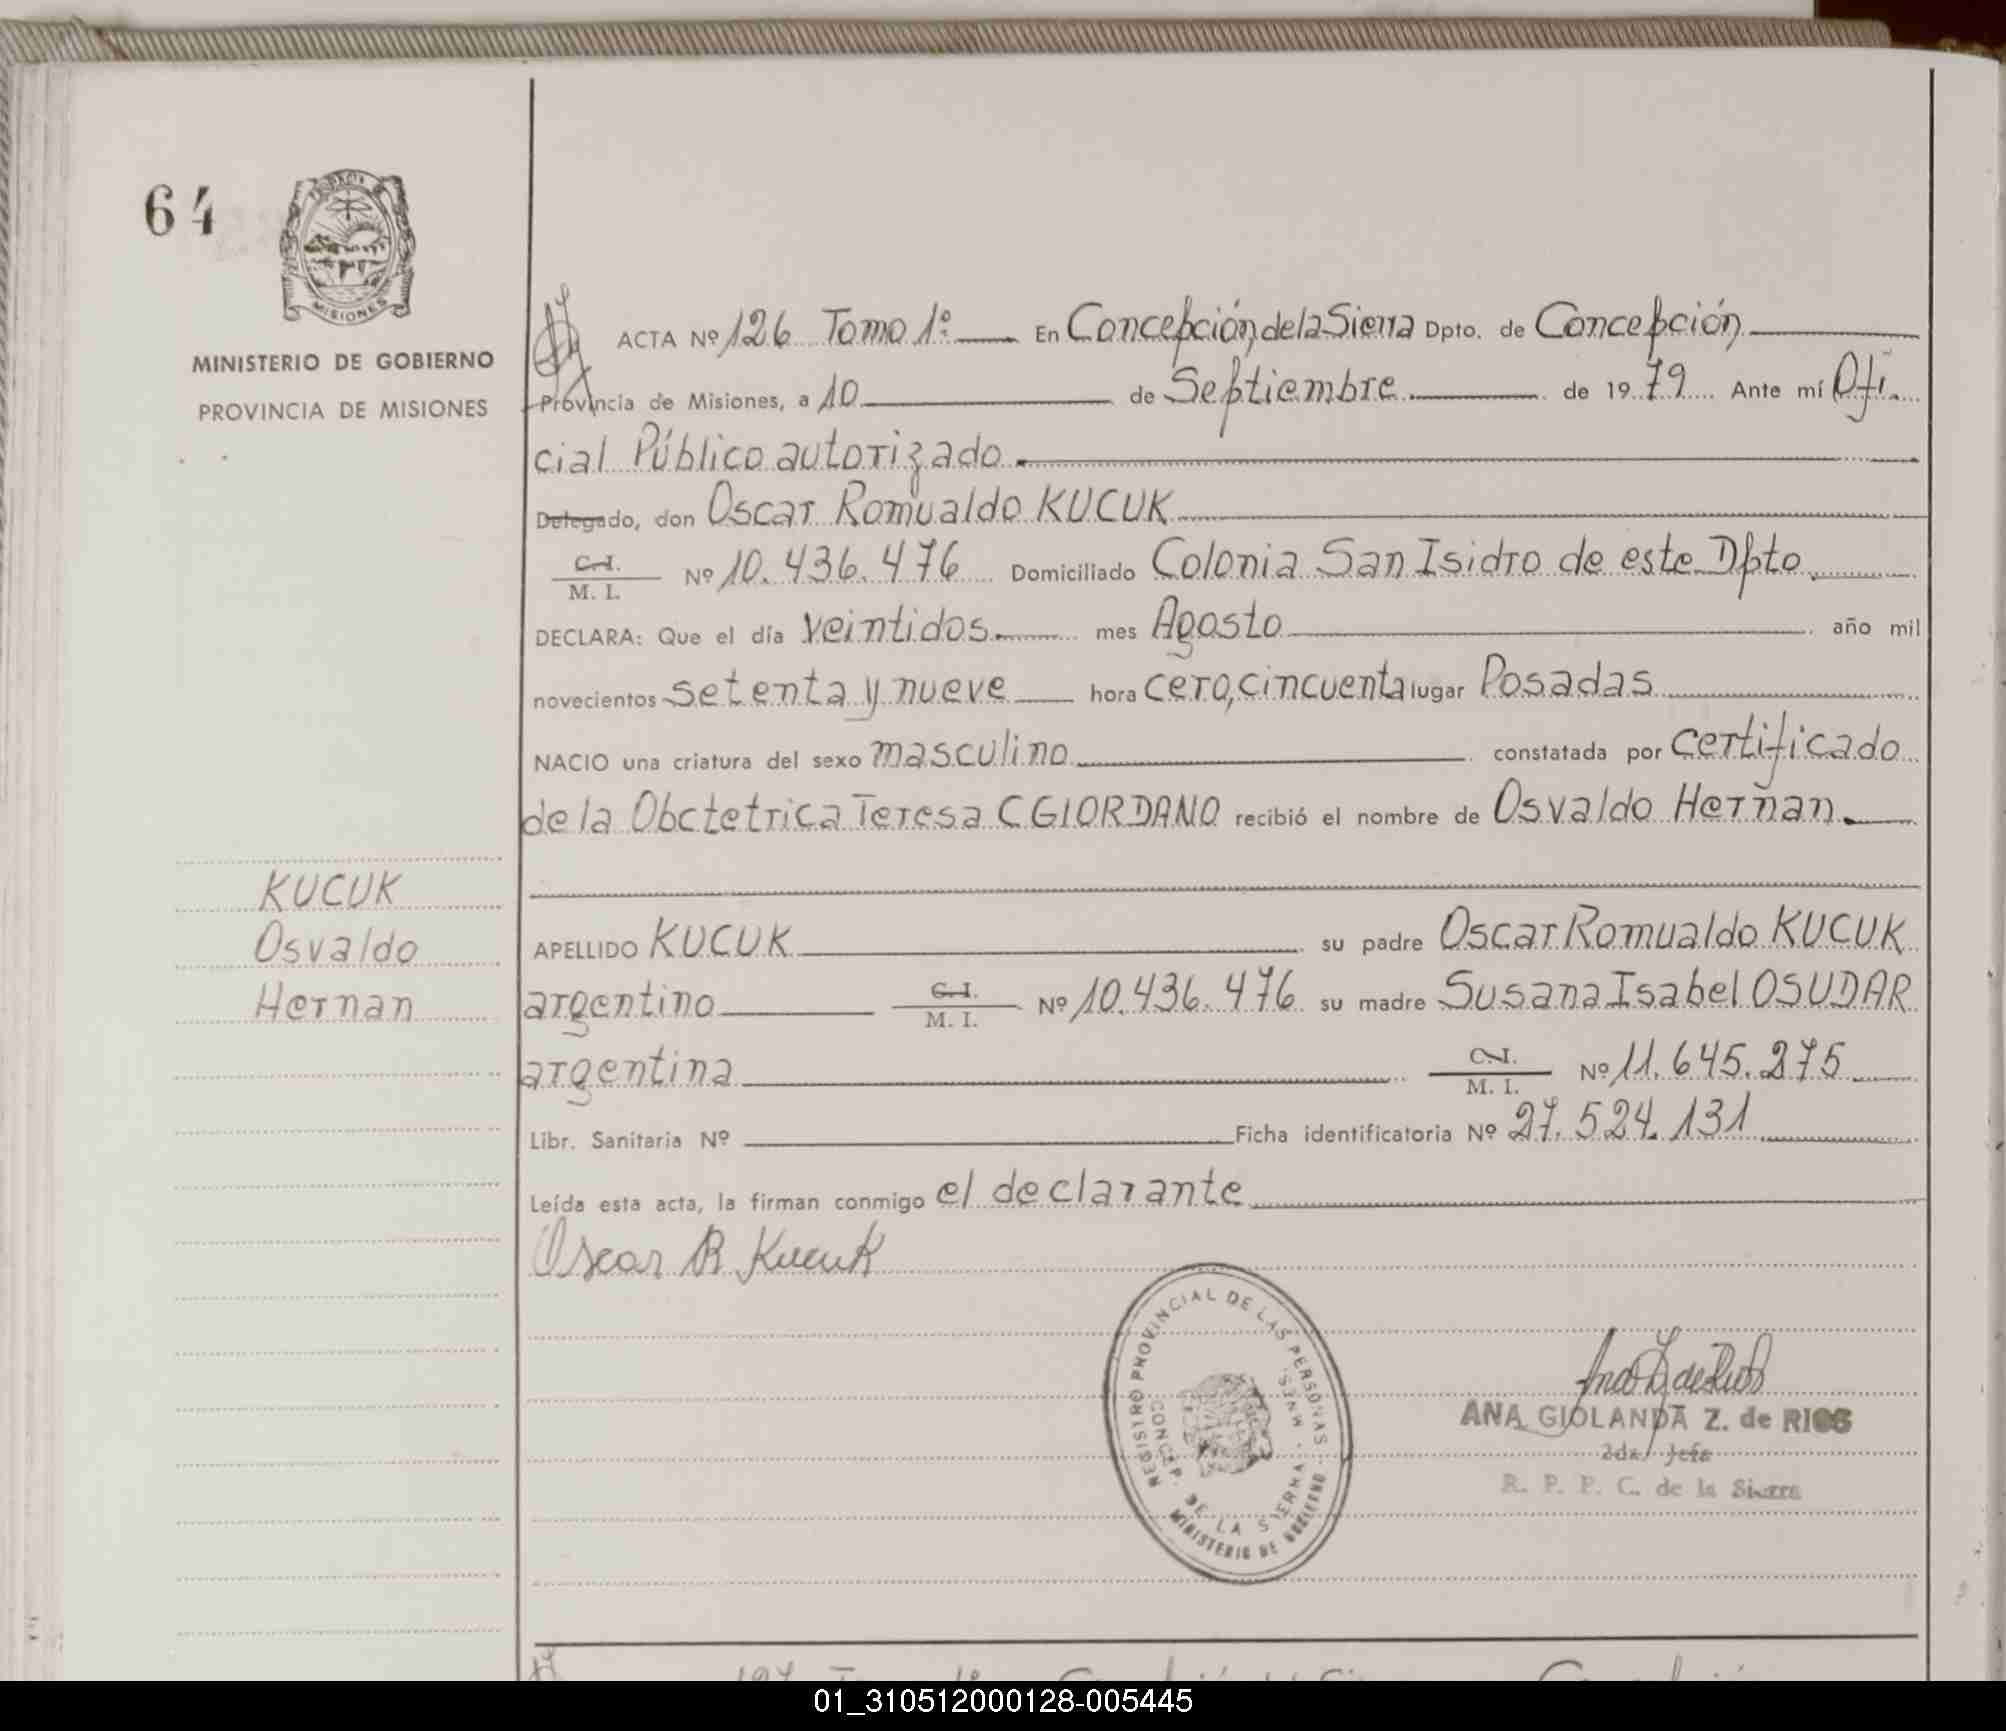 64
MISIONES
MINISTERIO DE GOBIERNO
PROVINCIA DE MISIONES
KUCUK
Osvaldo
Hernan
ACTA Nº 126 Tomo 1º En Concepción de la Sierra Dpto. de Concepción
Provincia de Misiones, a 10 de Septiembre de 1979 Ante mí Ofi
cial Público autorizado
Delegado, don Oscar Romualdo KUCUK
C. I.
M. I. Nº 10.436.476 Domiciliado Colonia San Isidro de este Dpto.
DECLARA: Que el día veintidos mes Agosto año mil
novecientos setenta y nueve hora cero, cincuenta lugar Posadas
NACIO una criatura del sexo masculino constatada por certificado
de la Obctetrica Teresa C GIORDANO recibió el nombre de Osvaldo Hernan
APELLIDO KUCUK su padre Oscar Romualdo KUCUK
argentino C. I.
M. I. Nº 10.436.476 su madre Susana Isabel OSUDAR
argentina C. I.
M. I. Nº 11.645.275
Libr. Sanitaria Nº Ficha identificatoria Nº 27.524.131
Leída esta acta, la firman conmigo el declarante
Oscar R Kucuk
REGISTRO PROVINCIAL DE LAS PERSONAS
CONCEP. DE LA SIERRA - MNES.
MINISTERIO DE GOBIERNO
Ana Z de Rios
ANA GIOLANDA Z. de RIOS
2da. Jefe
R. P. P. C. de la Sierra
01_310512000128-005445